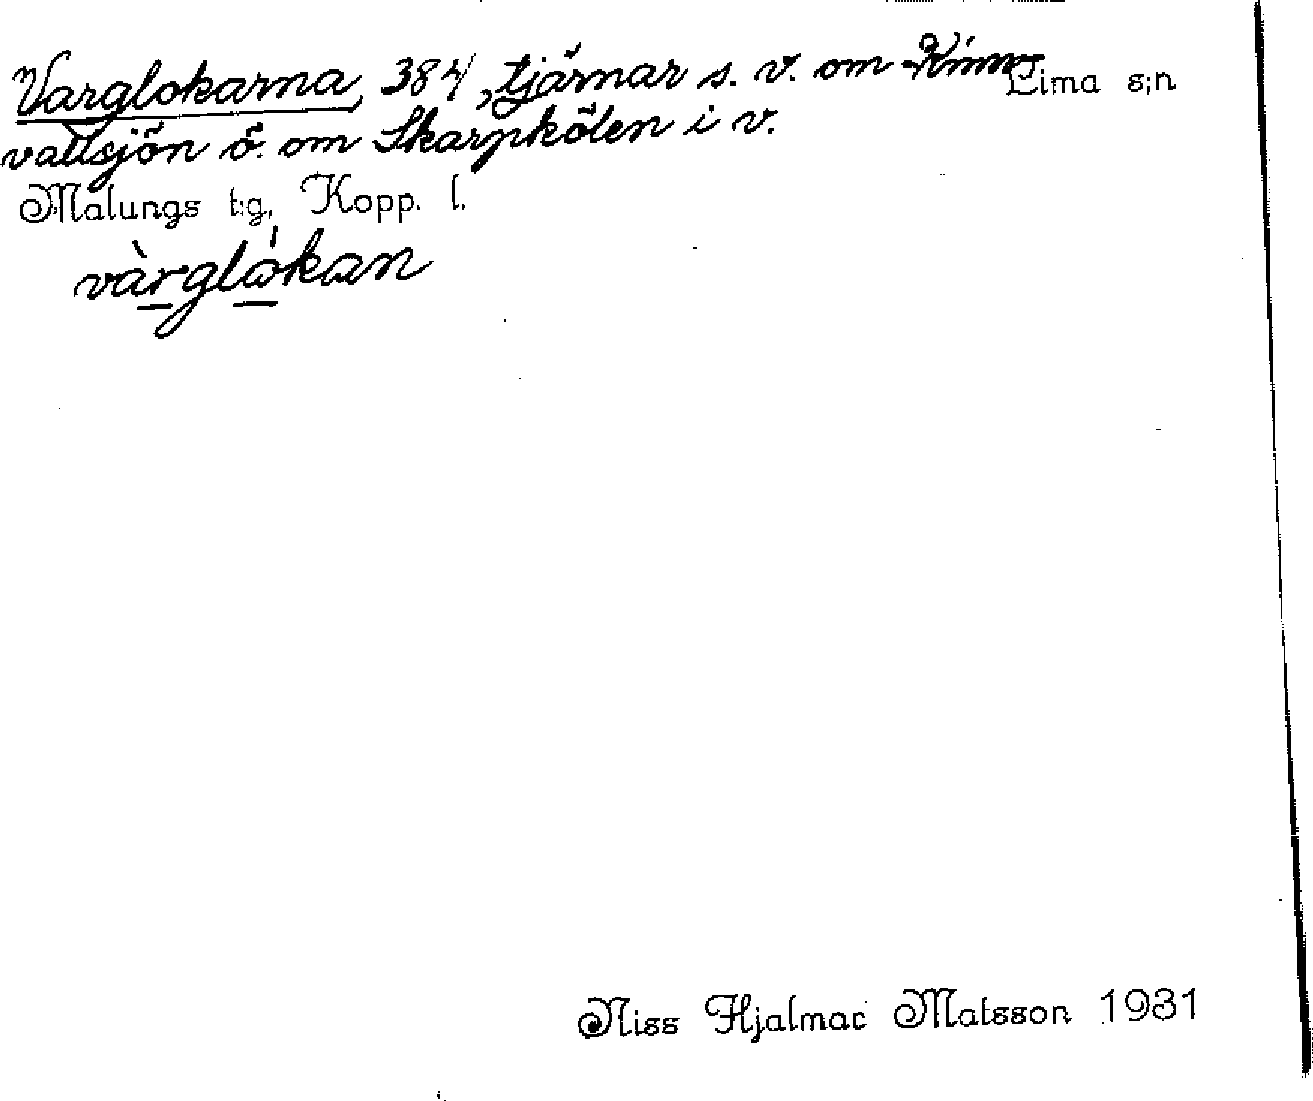 Varglokarna, 384, tjärnar s. v. om Kinn-
Lima s;n
vallsjön ö. om Skarpkölen i v.
Malungs t:g, Kopp. l.
vàrglókan
Niss Hjalmar Matsson 1931